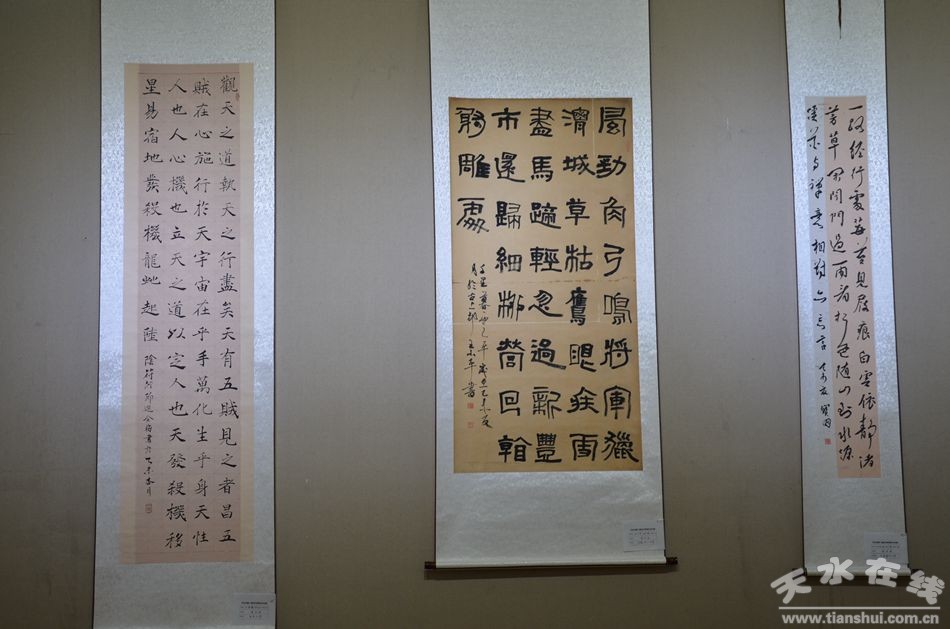 觀天之道執天之行盡矣天有五賊見之者昌五
賊在心施行於天宇宙在乎手萬化生乎身天性
人也人心機也立天之道以定人也天發殺機移
星易宿地發殺機龍虵起陸
風勁角弓鳴將軍獵
渭城草枯鷹眼疾雪
盡馬蹄輕忽過新豐
市還歸細柳營回看
射雕處
一路經行處莓苔見屐痕白雲依靜渚
芳草閉閑門過雨看松色隨山到水源
溪花與禪意相對亦忘言
天水在线
www.tianshui.com.cn